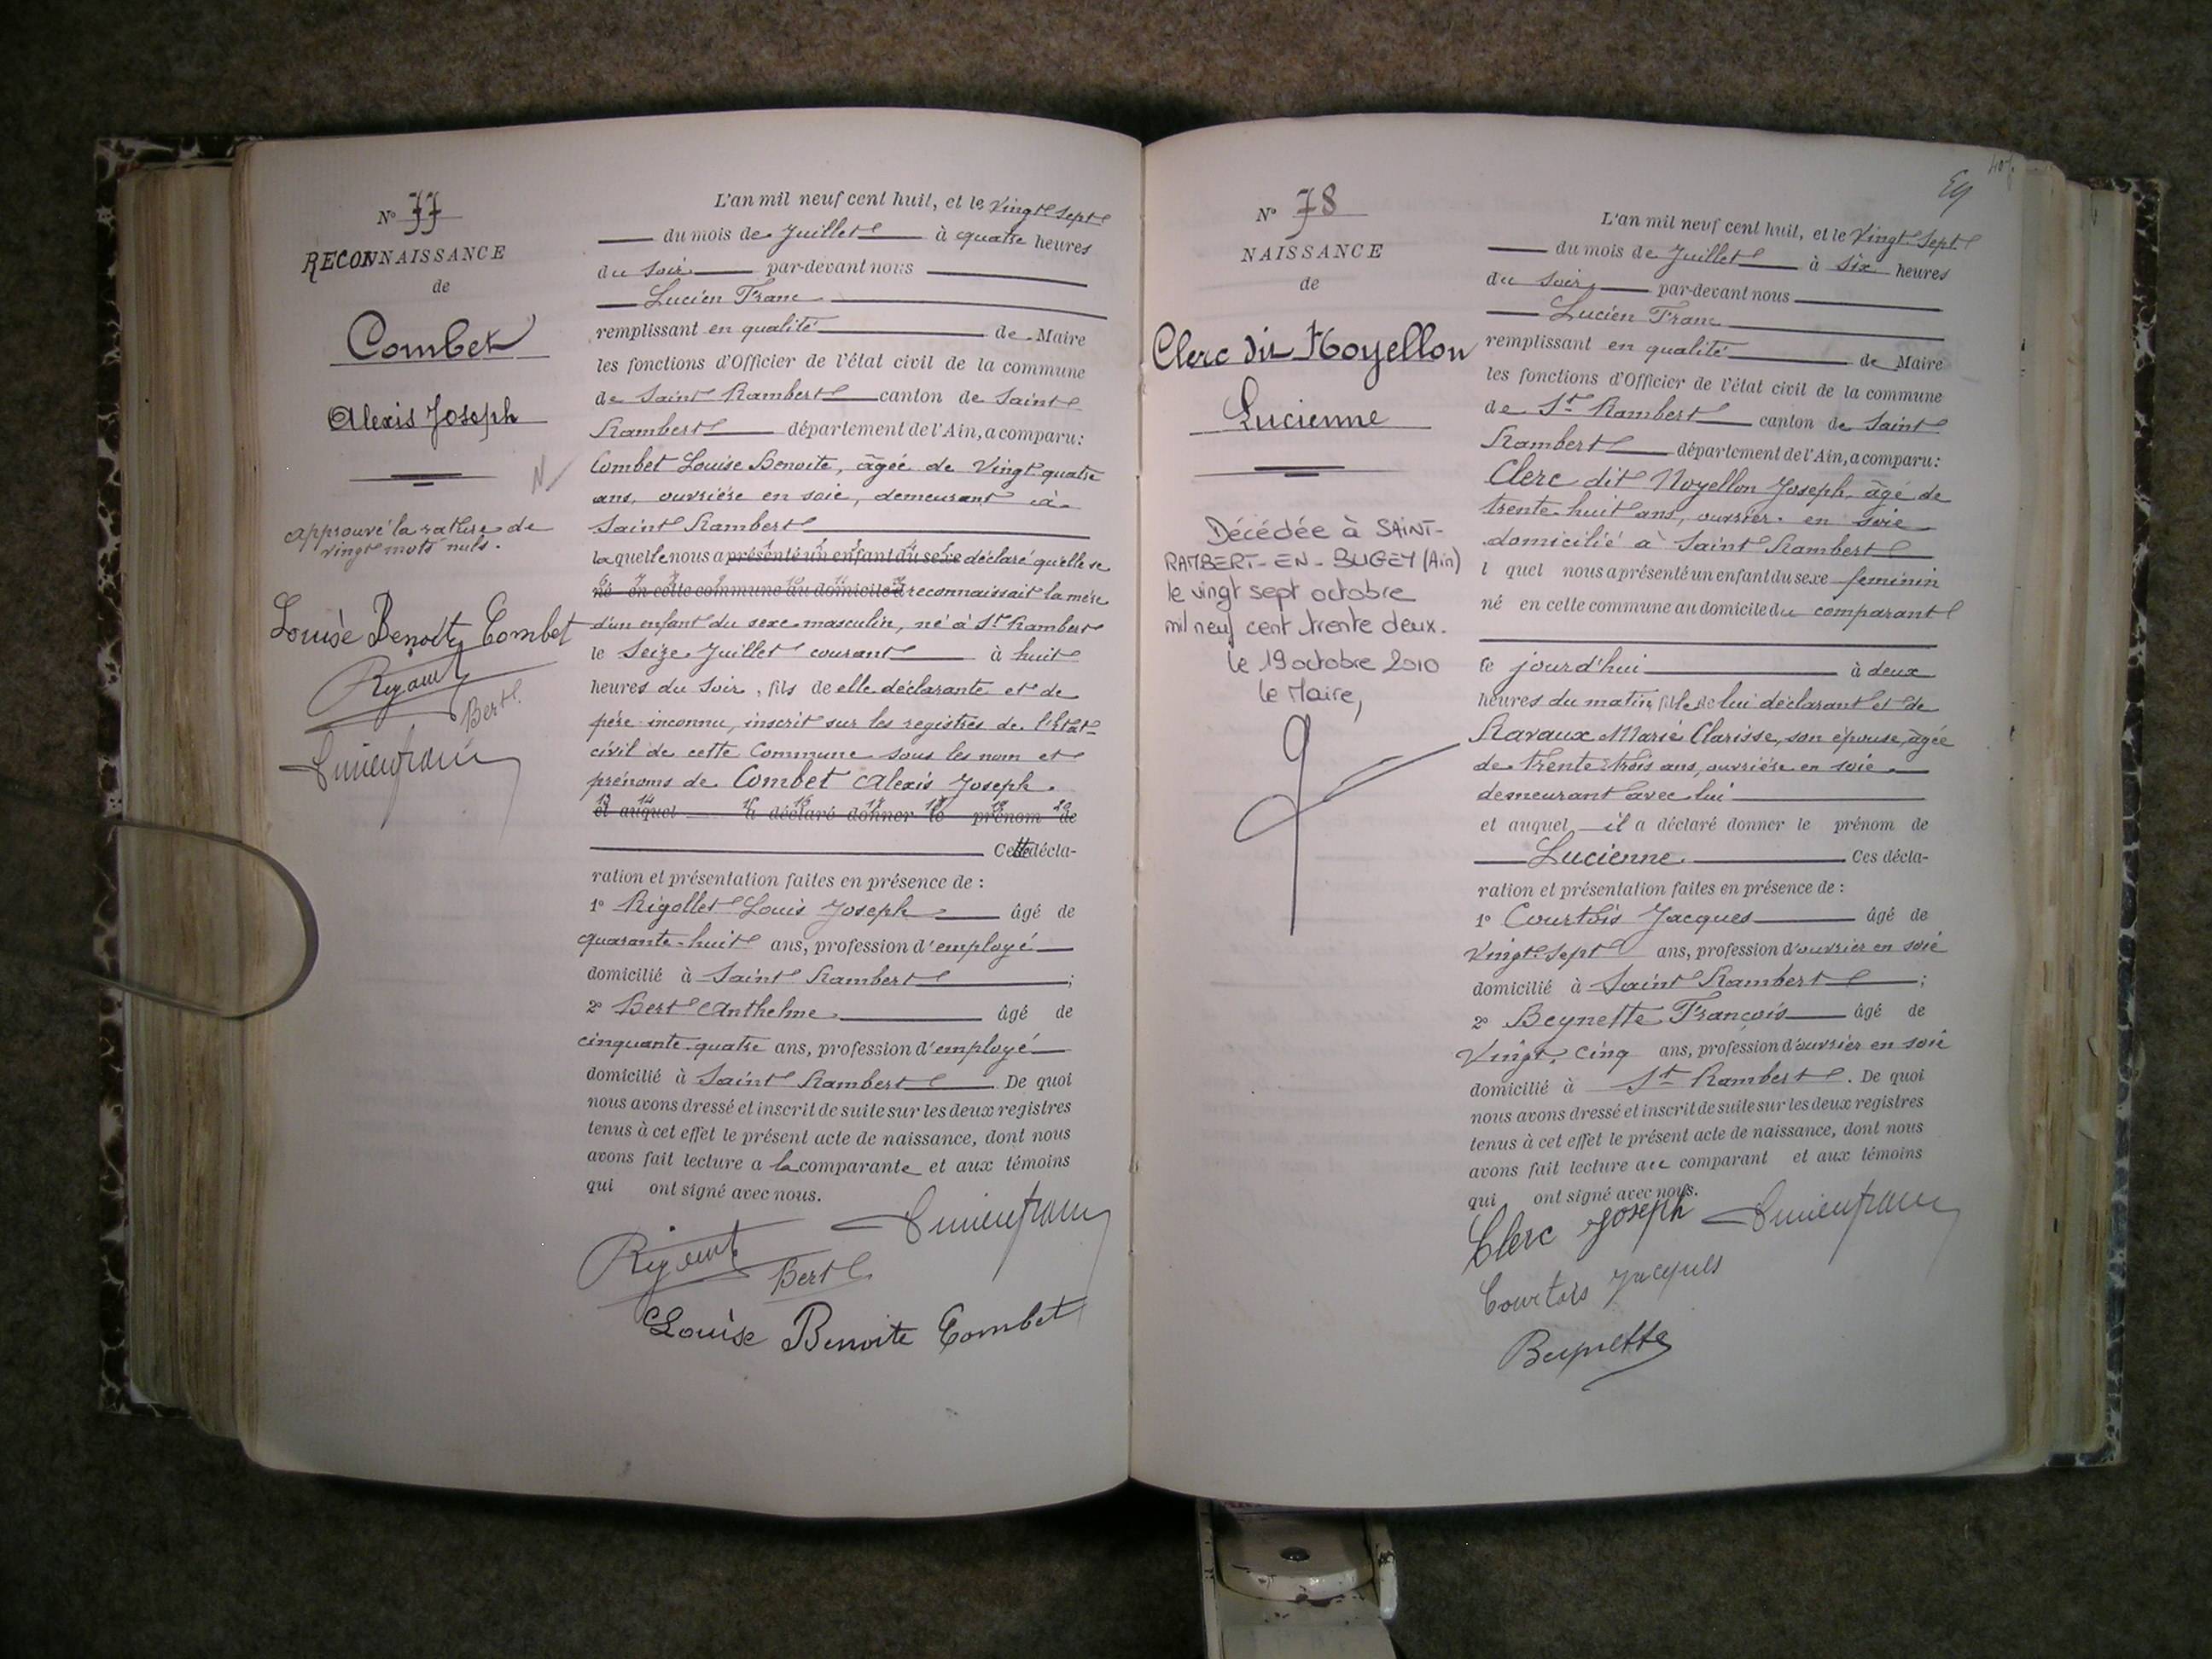 N° 77
RECONNAISSANCE
de
Combet
Alexis Joseph
approuvé la rature de
vingt mots nuls.
Louise Benoite Combet
Bert
L'an mil neuf cent huit, et le vingt sept
du mois de Juillet à quatre heures
du soir par-devant nous
Lucien Franc
remplissant en qualité de Maire
les fonctions d'Officier de l'état civil de la commune
de Saint Rambert canton de Saint
Rambert département de l'Ain, a comparu:
Combet Louise Benoite, âgée de Vingt quatre
ans, ouvrière en soie, demeurant à
Saint Rambert
laquelle nous a présenté un enfant du sexe déclaré qu'elle se
né en cette commune au domicile d reconnaissait la mère
d'un enfant du sexe masculin, né à St Rambert
le Seize Juillet courant à huit
heures du Soir, fils de elle déclarante et de
père inconnu, inscrit sur les registres de l'Etat-
civil de cette Commune sous les nom et
prénoms de Combet Alexis Joseph.
13 14 15 16 17 18 19 20
et auquel a déclaré donner le prénom de
Cette décla-
ration et présentation faites en présence de :
1° Rigollet Louis Joseph âgé de
quarante-huit ans, profession d'employé
domicilié à Saint Rambert ;
2° Bert Anthelme âgé de
cinquante-quatre ans, profession d'employé
domicilié à Saint Rambert De quoi
nous avons dressé et inscrit de suite sur les deux registres
tenus à cet effet le présent acte de naissance, dont nous
avons fait lecture a la comparante et aux témoins
qui ont signé avec nous.
Bert
Louise Benoite Combet
N° 78
NAISSANCE
de
Clerc dit Noyellon
Lucienne
Décédée à SAINT-
RAMBERT-EN-BUGEY (Ain)
le vingt sept octobre
mil neuf cent trente deux.
le 19 octobre 2010
le Maire,
L'an mil neuf cent huit, et le Vingt Sept
du mois de Juillet à Six heures
du soir par-devant nous
Lucien Franc
remplissant en qualité de Maire
les fonctions d'Officier de l'état civil de la commune
de St Rambert canton de Saint
Rambert département de l'Ain, a comparu:
Clerc dit Noyellon Joseph âgé de
trente huit ans, ouvrier en soie
domicilié à Saint Rambert
l quel nous a présenté un enfant du sexe feminin
né en cette commune au domicile du comparant
ce jourd'hui à deux
heures du matin fille de lui déclarant et de
Ravaux Marie Clarisse, son épouse, âgée
de trente trois ans, ouvrière en soie
demeurant avec lui
et auquel il a déclaré donner le prénom de
Lucienne. Ces décla-
ration et présentation faites en présence de :
1° Courtois Jacques âgé de
Vingt-Sept ans, profession d'ouvrier en soie
domicilié à Saint Rambert ;
2° Beynette François âgé de
Vingt Cinq ans, profession d'ouvrier en soie
domicilié à St Rambert. De quoi
nous avons dressé et inscrit de suite sur les deux registres
tenus à cet effet le présent acte de naissance, dont nous
avons fait lecture au comparant et aux témoins
qui ont signé avec nous.
Clerc Joseph
Courtois Jacques
Beynette